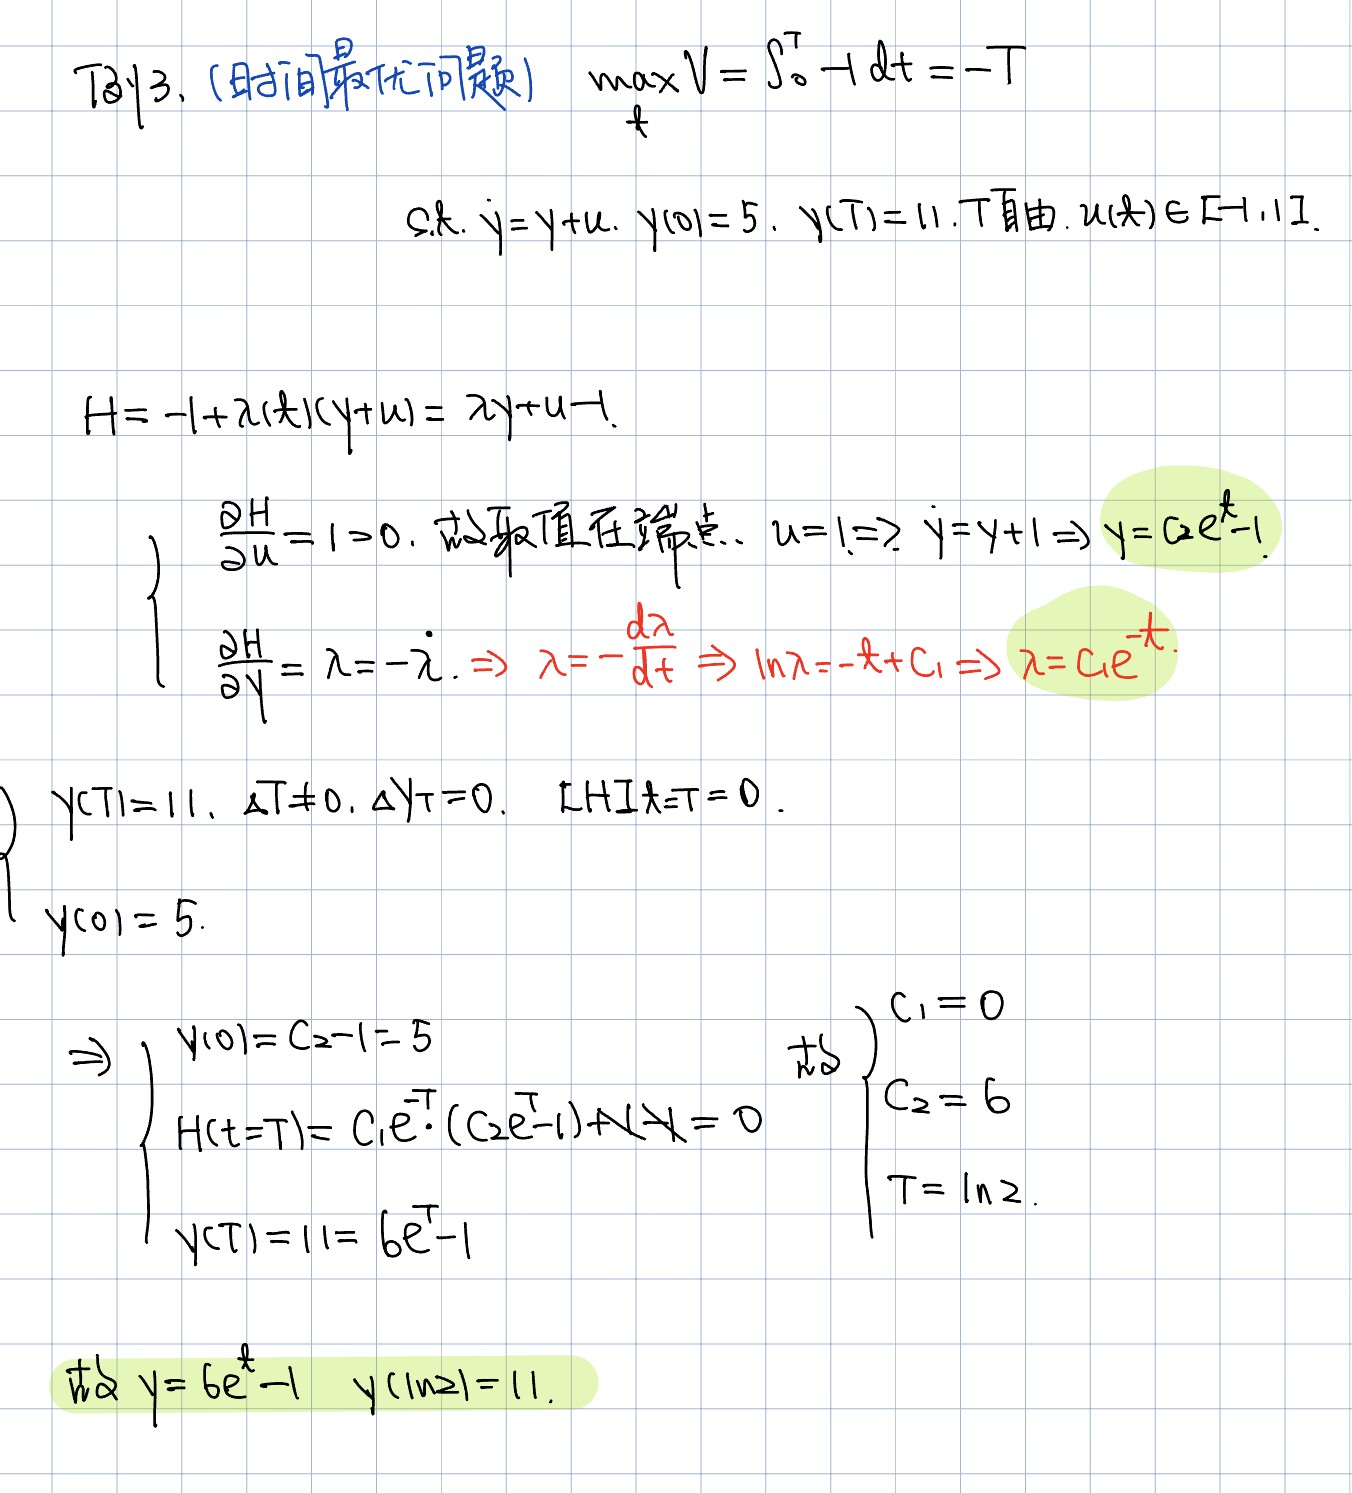 例3.(时间最优问题) max V = ∫₀ᵀ -1 dt = -T
t
s.t. ẏ=y+u. y(0)=5. y(T)=11. T自由. u(t)∈[-1,1].
H = -1+λ(t)(y+u) = λy+u-1.
∂H/∂u = 1>0. 故取值在端点. u=1. => ẏ=y+1 => y=C₂eᵗ-1.
∂H/∂y = λ = -λ̇. => λ = -dλ/dt => lnλ = -t+C₁ => λ=C₁e⁻ᵗ.
y(T)=11. ΔT≠0. Δy_T=0. [H]t=T=0.
y(0)=5.
=> y(0)=C₂-1=5 故 C₁=0
H(t=T)= C₁e⁻ᵀ·(C₂eᵀ-1)+1-1=0 C₂=6
y(T)=11=6eᵀ-1 T=ln2.
故 y=6eᵗ-1 y(ln2)=11.